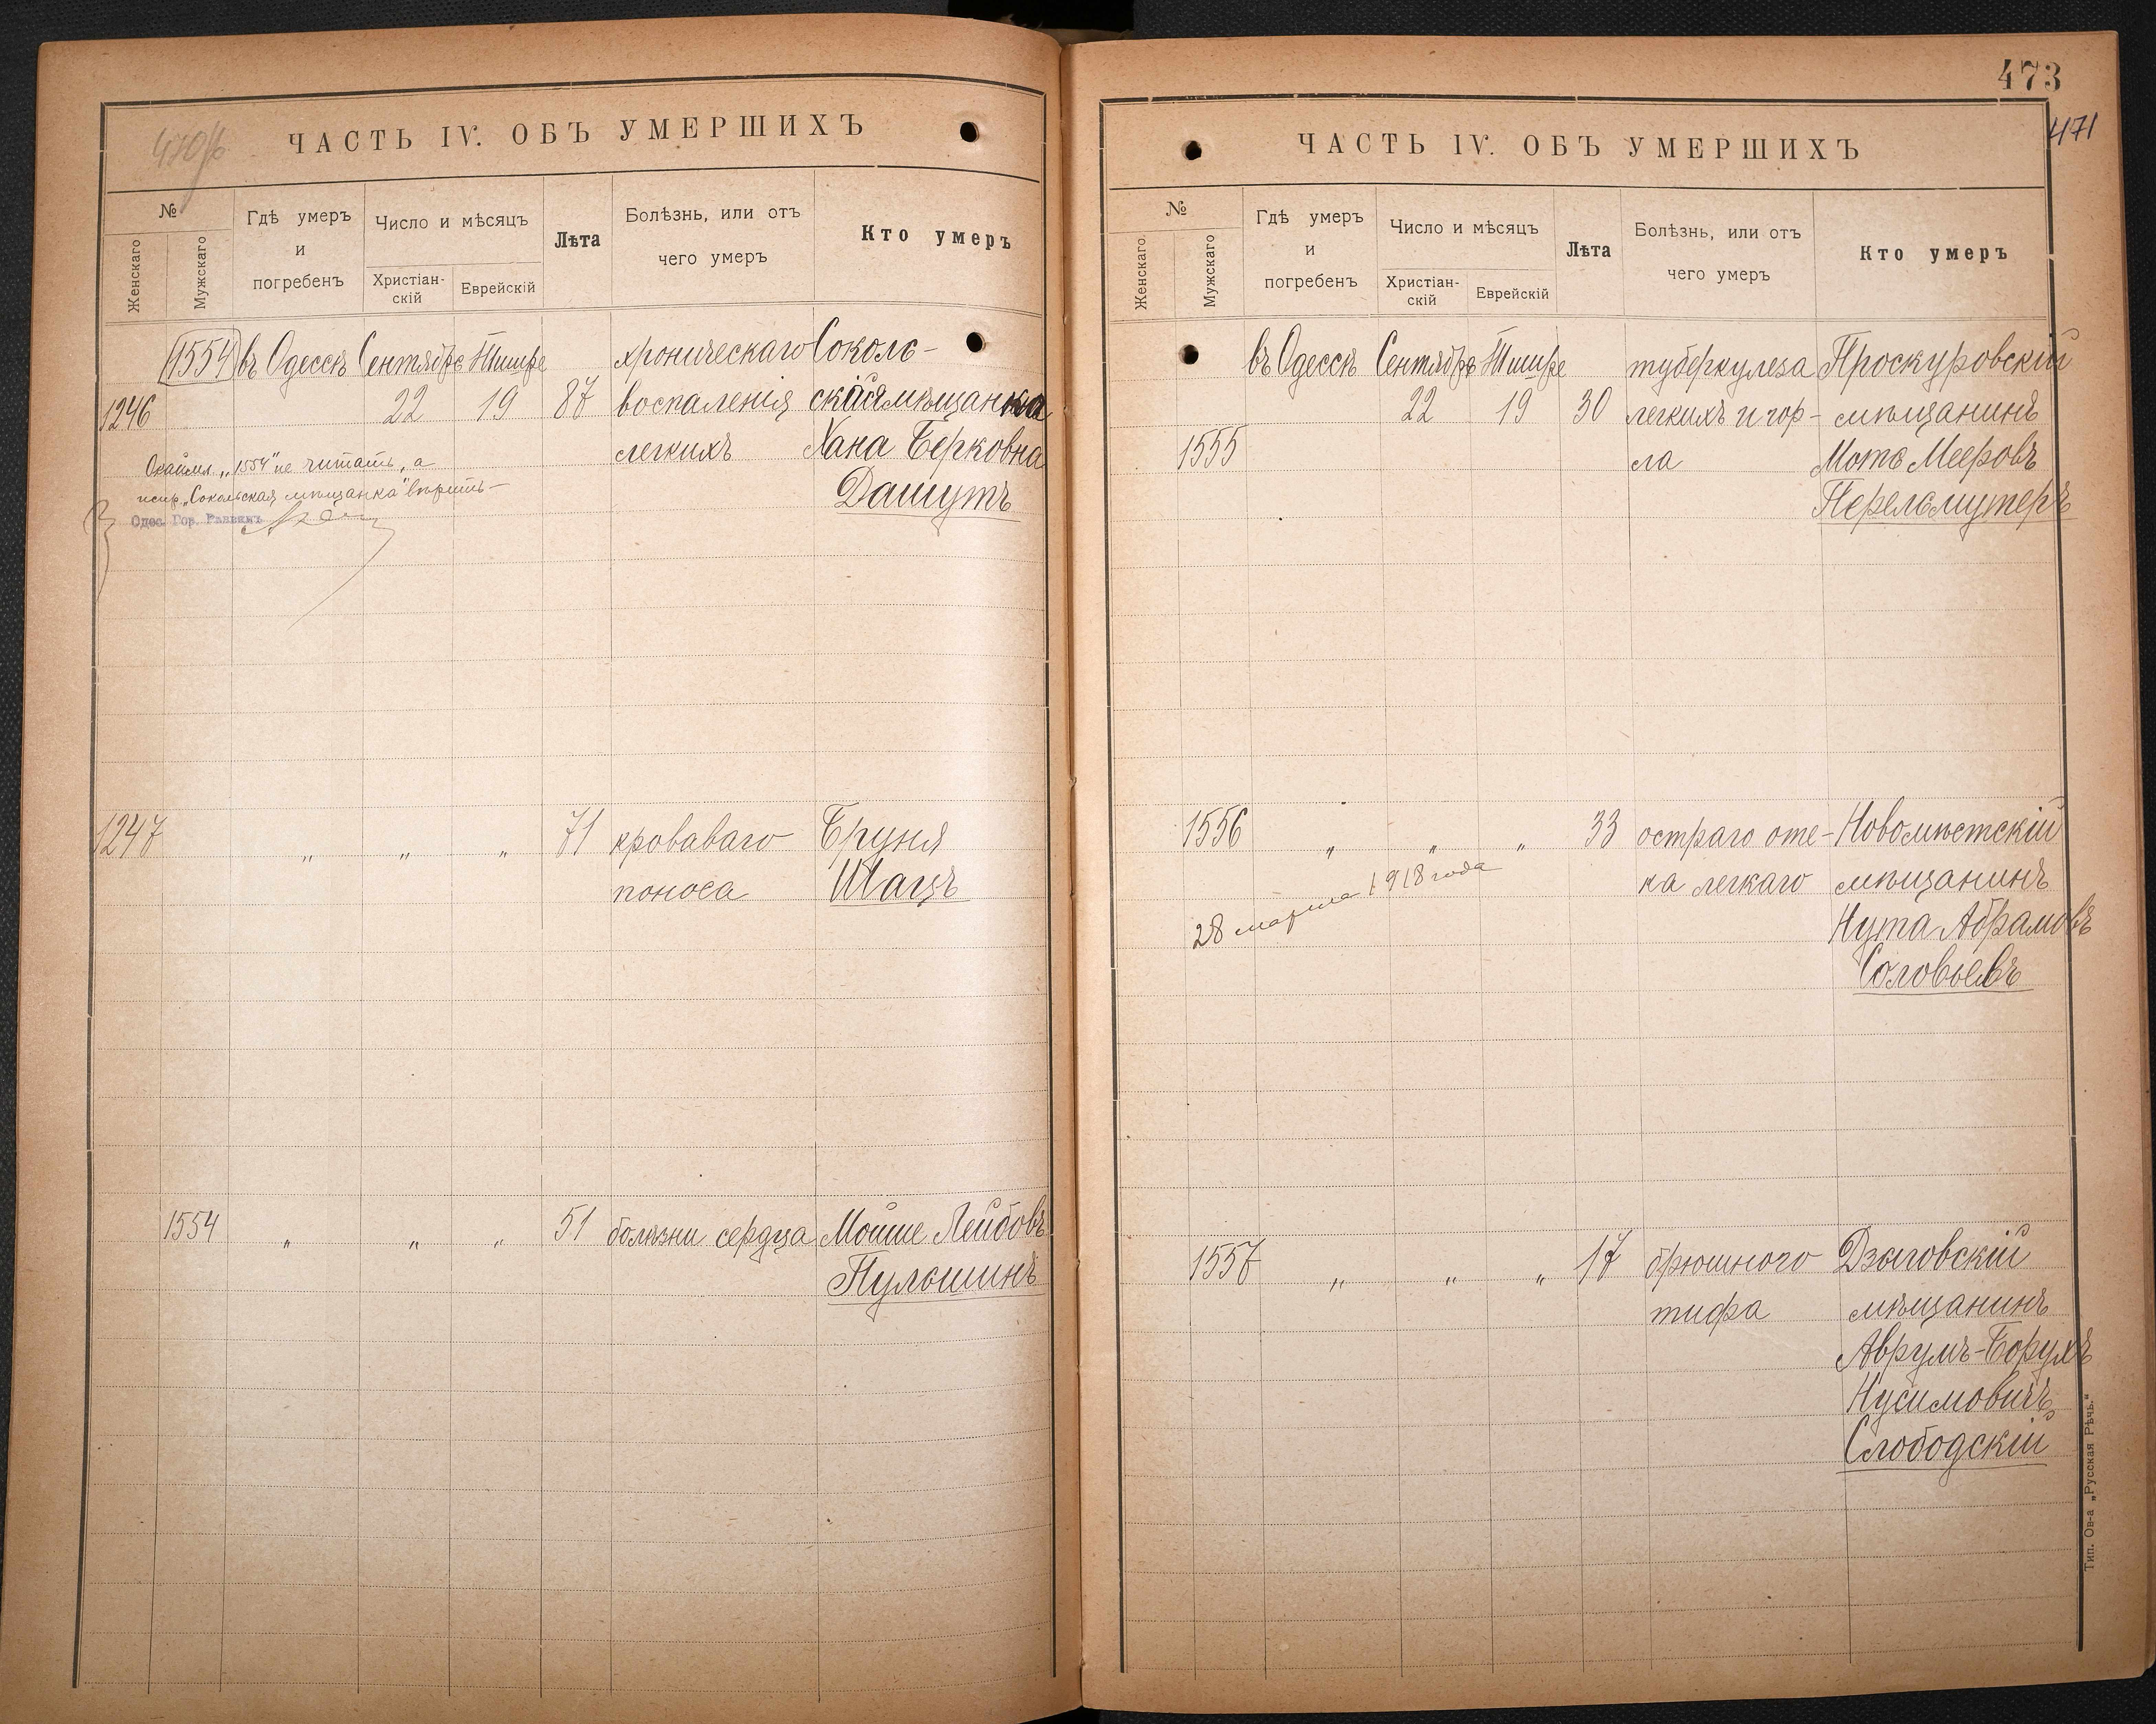 470/б
ЧАСТЬ IV. ОБЪ УМЕРШИХЪ
№
Женскаго
Мужскаго
Гдѣ умеръ
и
погребенъ
Число и мѣсяцъ
Христіан-
скій
Еврейскій
Лѣта
Болѣзнь, или отъ
чего умеръ
Кто умеръ
1554 въ Одессѣ Сентября Тишре хроническаго Соколь-
1246 22 19 87 воспаленія ская мѣщанка
легкихъ Хана Берковна
Дашутъ
Окаймл. „1554" не читать, а
испр. „Сокольская мѣщанка" вѣрить —
Одес. Гор. Раввинъ
1247 „ „ „ 71 кроваваго Бруня
поноса Шацъ
1554 „ „ „ 51 болѣзни сердца Мойше Лейбовъ
Пульшинъ
473
471
ЧАСТЬ IV. ОБЪ УМЕРШИХЪ
№
Женскаго.
Мужскаго
Гдѣ умеръ
и
погребенъ
Число и мѣсяцъ
Христіан-
скій
Еврейскій
Лѣта
Болѣзнь, или отъ
чего умеръ
Кто умеръ
въ Одессѣ Сентября Тишре туберкулеза Проскуровскій
22 19 30 легкихъ и гор- мѣщанинъ
1555 ла Мота Мееровъ
Перельмутеръ
1556 „ „ „ 33 остраго оте- Новомѣстскій
ка легкаго мѣщанинъ
28 марта 1918 года
Нута Абрамовъ
Соловьевъ
1557 „ „ „ 17 брюшного Дзыговскій
тифа мѣщанинъ
Аврумъ-Борухъ
Нусимовичъ
Слободскій
Тип. Ов-а „Русская Рѣчь."